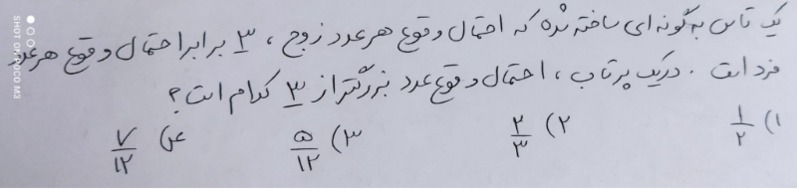 یک تاس به گونه ای ساخته شده که احتمال وقوع هر عدد زوج ، ۳ برابر احتمال وقوع هر عدد
فرد است . در یک پرتاب ، احتمال وقوع عدد بزرگتر از ۳ کدام است ؟
۱) ۱/۲ ۲) ۲/۳ ۳) ۵/۱۲ ۴) ۷/۱۲
SHOT ON POCO M3